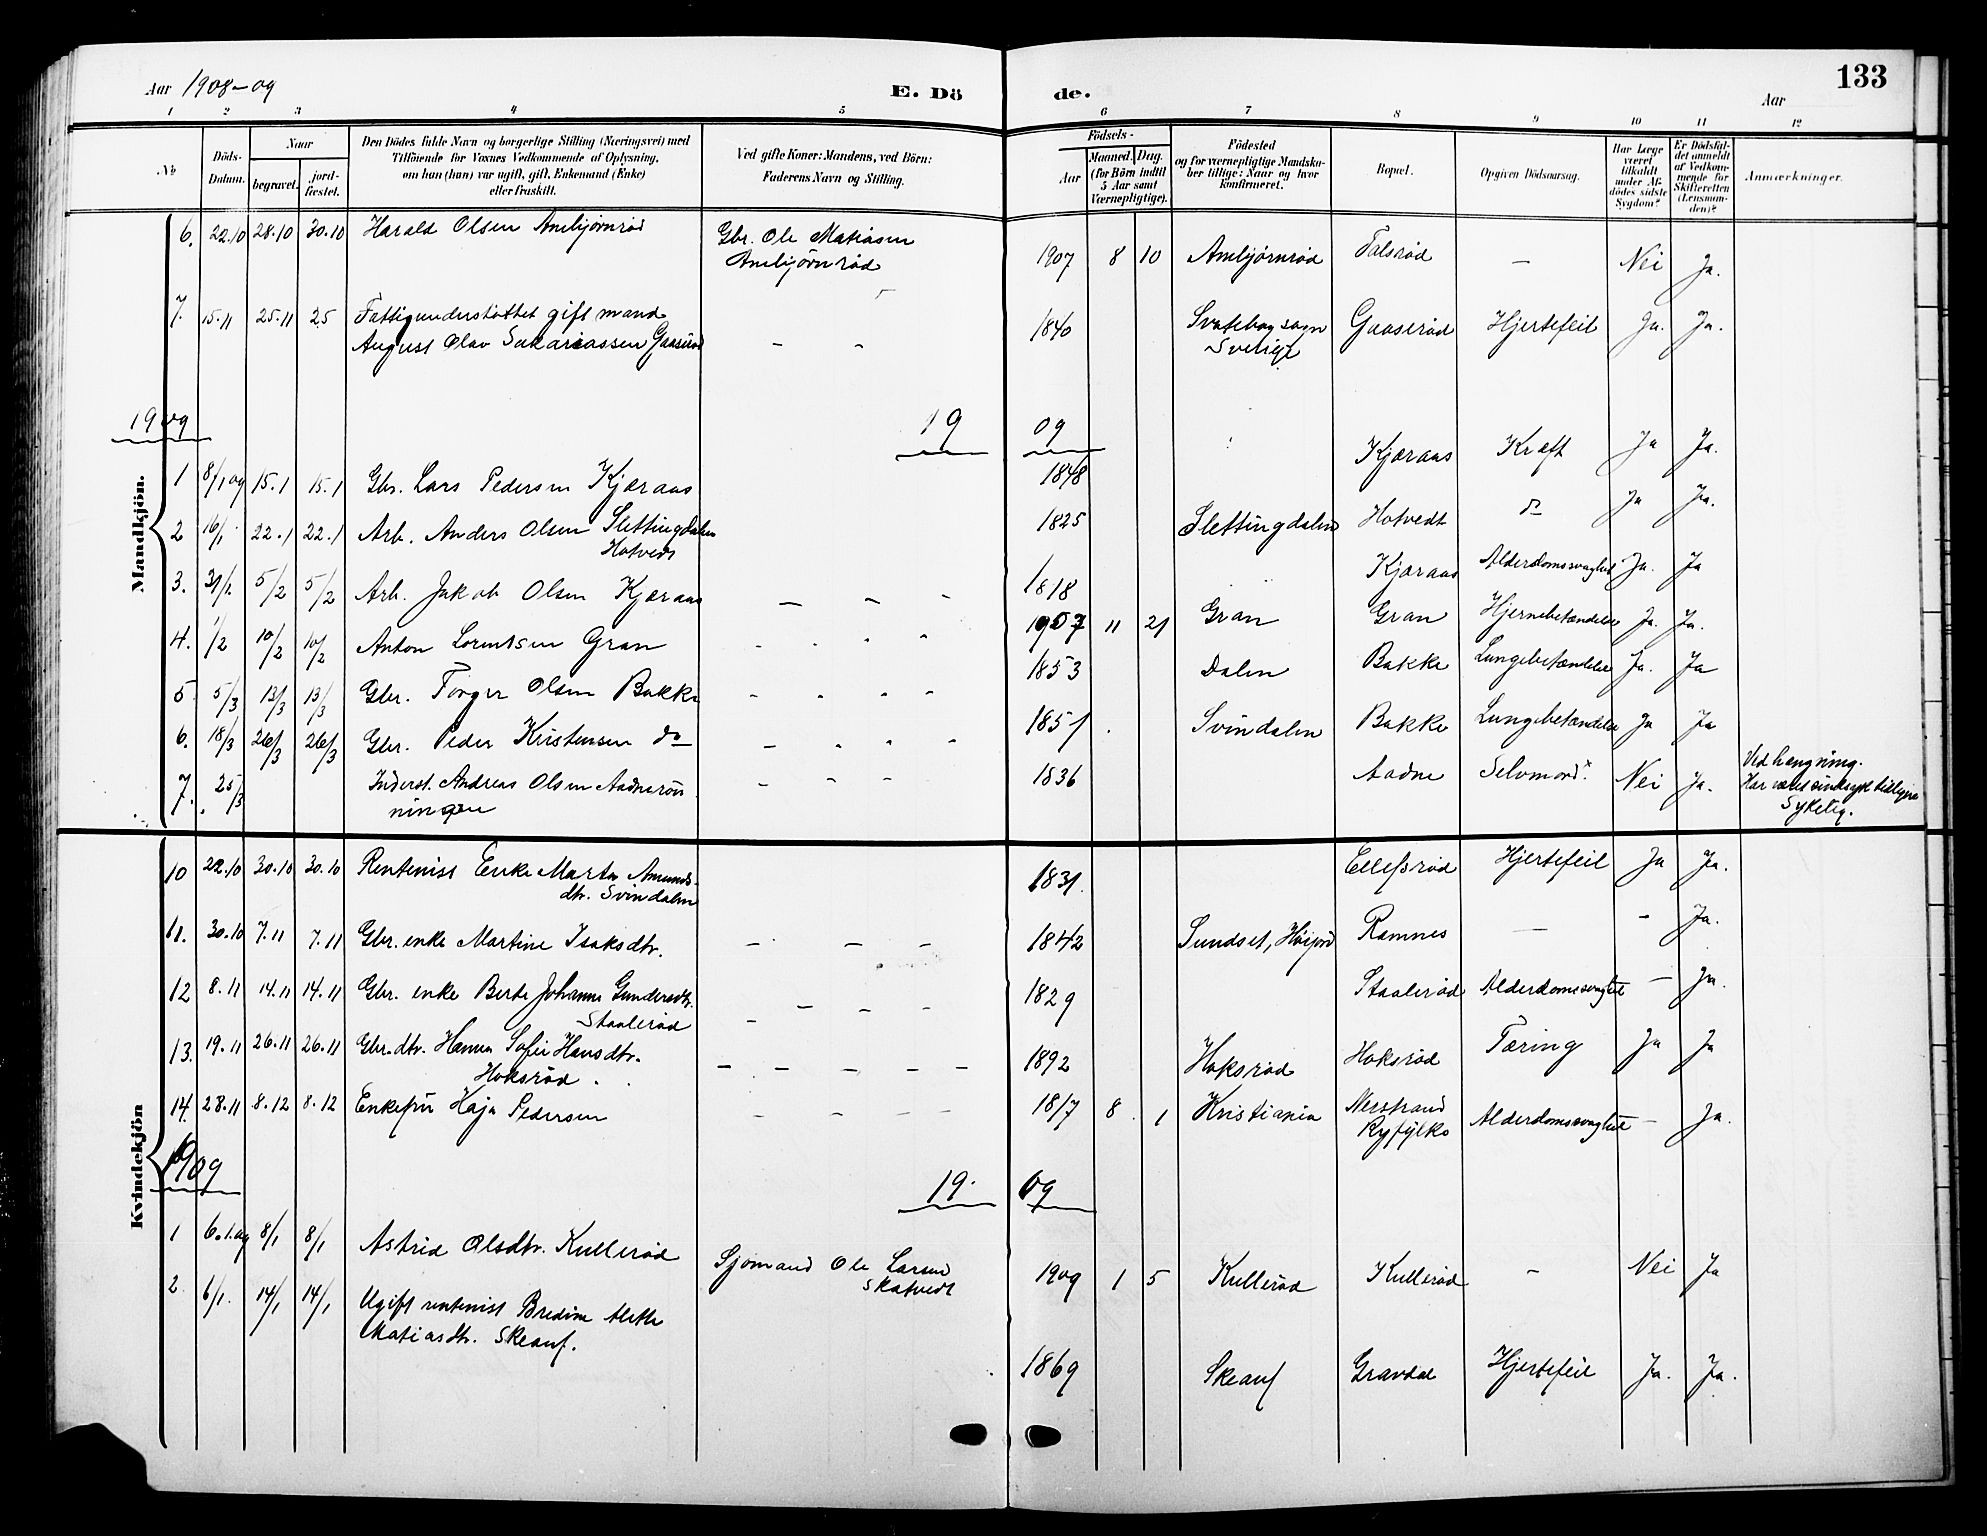 Aar 1908-09
E. Dö
de.
Aar
133
1 2 3 4 5 6 7 8 9 10 11 12
No
Döds-Datum.
Naar
begravet.
jord-fæstet.
Den Dödes fulde Navn og borgerlige Stilling (Næringsvei) med
Tilföiende for Voxnes Vedkommende af Oplysning,
om han (hun) var ugift, gift, Enkemand (Enke)
eller fraskilt.
Ved gifte Koner: Mandens, ved Börn:
Faderens Navn og Stilling.
Födsels-
Aar
Maaned. Dag.
(for Börn indtil
5 Aar samt
Værnepligtige).
Födested
og for værnepligtige Mandska-
ber tillige: Naar og hvor
konfirmeret.
Bopæl.
Opgiven Dödsaarsag.
Har Læge
været
tilkaldt
under Af-
dödes sidste
Sygdom?
Er Dödsfal-
det anmeldt
af Vedkom-
mende for
Skifteretten
(Lensman-
den)?
Anmærkninger.
Mandkjön.
6. 22.10 28.10 30.10 Harald Olsen Ambjørnrød Gbr. Ole Matiasen 1907 8 10 Ambjørnrød Falsrød — Nei Ja.
Ambjørnrød
7. 15.11 25.11 25 Fattigunderstøttet gift mand 1840 Gaaserød Hjertefeil Ja. Ja.
August Olav Sakariassen Gaaserød - - Sverige
1909
19 09
1 8/1 09 15.1 15.1 Gbr. Lars Pedersen Kjæraas 1848 Kjæraas Kræft Ja Ja.
2 16/1 22.1 22.1 Arb. Anders Olsen Slettingdalen 1825 Slettingdalen Hotvedt do Ja Ja.
Hotvedt
3. 31/1. 5/2 5/2 Arb. Jakob Olsen Kjæraas - - - 1818 Kjæraas Alderdomssvaghed Ja. Ja
4. 1/2 10/2 10/2 Anton Lorentsen Gran - - - 1907 11 21 Gran Gran Hjernebetændelse Ja. Ja.
5 5/3 13/3 13/3 Gbr. Torger Olsen Bakke - - - - 1853 Dalen Bakke Lungebetændelse Ja. Ja
6. 18/3 26/3 26/3 Gbr. Peder Kristensen do - - - - 1851 Svindalen Bakke Lungebetændelse Ja Ja
7. 25/3 Inderst. Andreas Olsen Aadnerön- - - - 1836 Aadne Selvmord.x Nei Ja. Ved hængning.
ningen
Har været sindssyk tidligere
Sykelig.
Kvindekjön
10 22.10 30.10 30.10 Rentenist Enke Marta Amunds- 1831. Ellefsrød Hjertefeil Ja Ja.
dtr. Svindalen
11. 30.10 7.11 7.11 Gbr. enke Martine Isaksdtr. - - - 1842 Sundset, Høijord Ramnes — - Ja.
12 8.11 14.11 14.11 Gbr. enke Berte Johanne Gundersdtr. 1829 Staalerød Alderdomssvaghed - Ja.
Staalerød - - - -
13. 19.11 26.11 26.11 Gbr.dtr. Hanna Sofie Hansdtr. - - - - - 1892 Hoksrød Hoksrød Tæring Ja Ja
Hoksrød.
14. 28.11 8.12 8.12 Enkefru Kaja Pedersen - - - - 1817 8. 1 Kristiania Nerstrand Alderdomssvaghed - Ja.
Ryfylke
1909
19. 09
1 6.1.09 8/1 8/1 Astrid Olsdtr. Kullerød Sjømand Ole Larsen 1909 1 5 Kullerød Kullerød - Nei Ja
Skatvedt
2. 6/1. 14/1 14/1 Ugift rentenist Bredine Alette
Matiasdtr. Skeauf. 1869 Skeauf Gravdal Hjertefeil Ja. Ja.